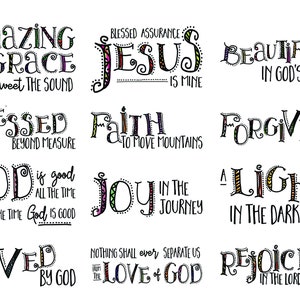 AZING
GRACE
weet THE SOUND
BLESSED ASSURANCE
JESUS
IS MINE
BEAUTIF
IN GOD'S
ESSED
BEYOND MEASURE
FAITH
TO MOVE MOUNTAINS
FORGIV
OD is good
ALL THE TIME
THE TIME God IS GOOD
JOY IN THE
JOURNEY
A LIGH
IN THE DARK
VED
BY GOD
NOTHING SHALL ever SEPARATE US
FROM THE LOVE of GOD
REJOICE
IN THE LORD